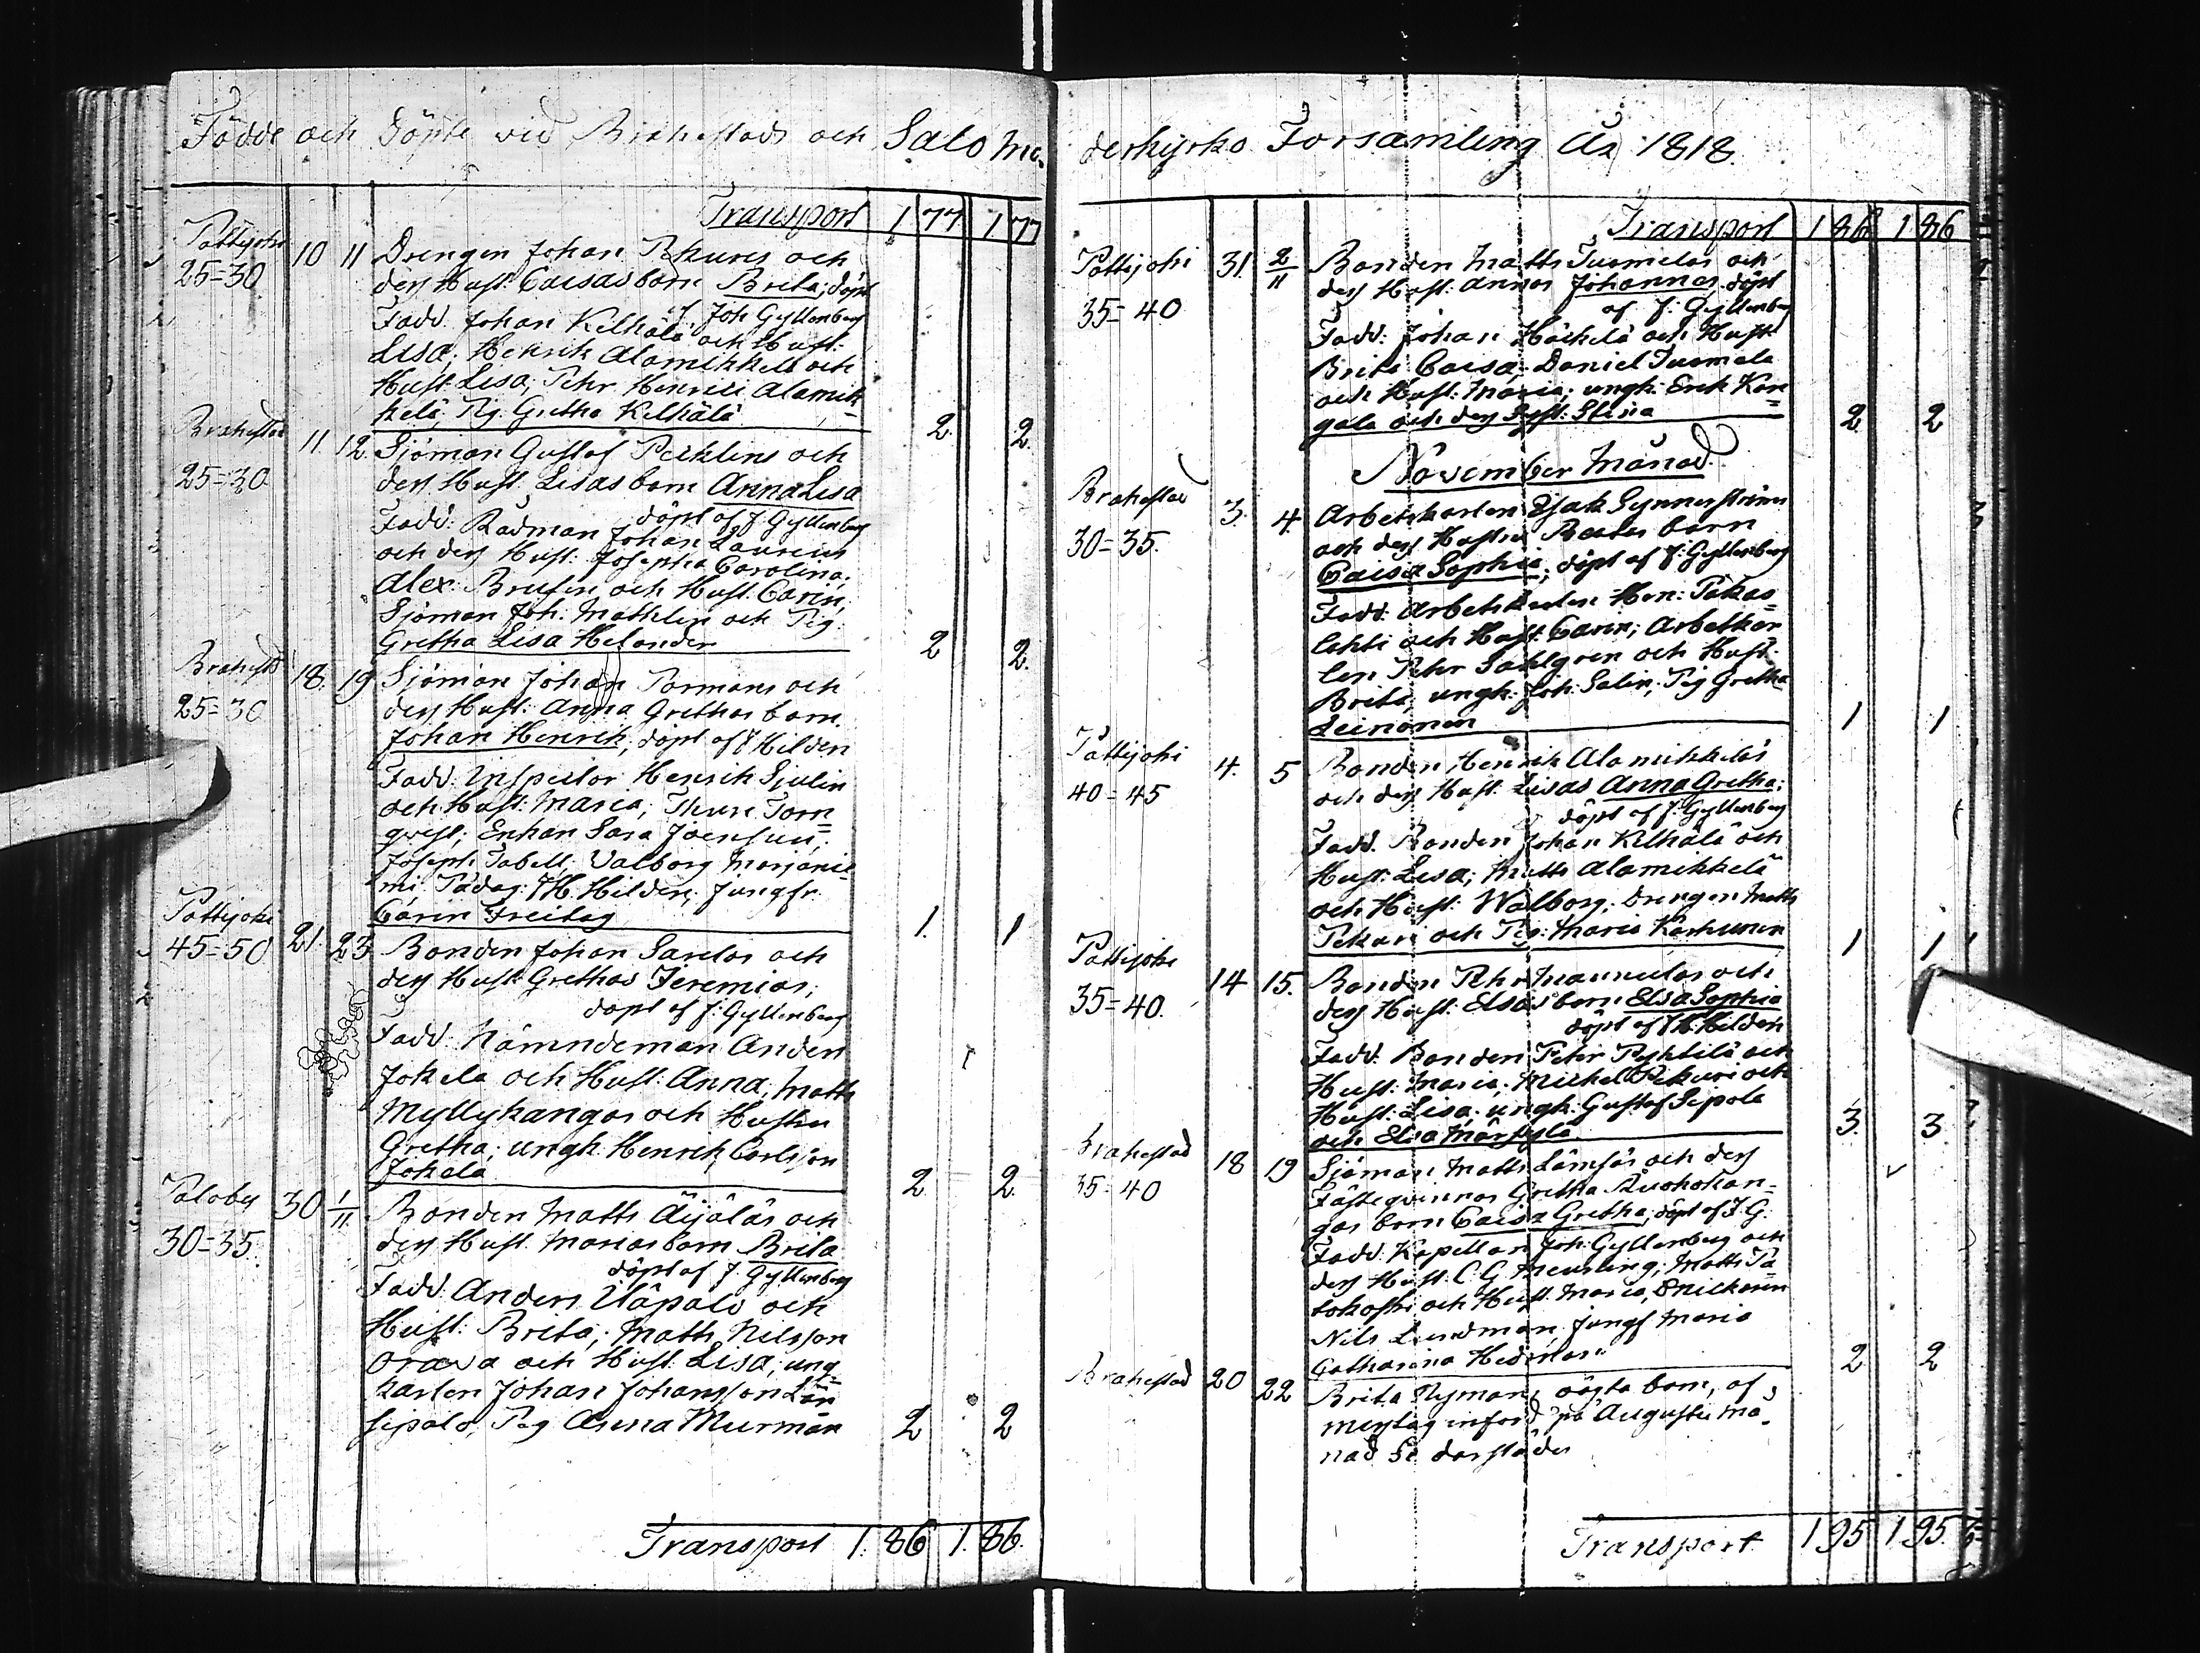 Födde och Döpte vid Brahestads och Salo Mo-
Transport 1 77 1 77
Pattijoki 10 11 Drengen Johan Pekuris och
25=30 dess Hust: Caisas barn Brita; döpt
af Joh Gyllenberg
Fadd: Johan Kelhälä och Hust:
Lisa; Henrik Alamikkela och
Hust: Lisa; Pehr Henrici Alamik=
kelä, Pig. Gretha Kelhälä 2 2
Brahestad 11 12 Sjöman Gustaf Pecklins och
25=30 dess Hust. Lisas barn Anna Lisa
döpt af J Gyllenberg
Fadd: Rådman Johan Laurius
och dess Hust: Josepha Carolina;
Alex: Brusin och Hust: Carin;
Sjöman Joh: Mathlin och Pig:
Gretha Lisa Helander 2 2
Brahestd 18 19 Sjöman Johan Pormans och
25=30 dess Hust: Anna Grethas barn
Johan Henrik; döpt af Hilden
Fadd: Inspector Henrik Sjulin
och Hust: Maria; Thure Torn=
qvist; Enkan Sara Joensuu;
Joseph Tabell; Valborg Marjanie=
mi Pädag: H. Hilden; Jungfr
Carin Freitag 1 1
Pattijoki 21 23 Bonden Johan Sarelas och
45=50 dess Hust: Grethas Jeremias;
döpt af J: Gyllenberg
Fadd: Nämndeman Anders
Jokela och Hust: Anna; Matts
Myllykangas och Hustru
Gretha; ungk: Henrik Carlsson
Jokela 2 2
Saloby 30 1/11 Bonden Matts Äijäläs och
30=35 dess Hust. Marias barn Brita
döpt af J. Gyllenberg
Fadd: Anders Ylipalo och
Hust: Brita; Matts Nilsson
Orava och Hust: Lisa; ung=
karlen Johan Johansson Län
sipalo; Pig Anna Murman 2 2
Transport 1 86 1 86
derkyrko Forsamling År 1818.
Transport 1 86 1 86
Pattijoki 31 2/11 Bonden Matts Tuomelas och
35=40 dess Hust: Annas Johannes, döpt
af J: Gyllenberg
Fadd: Johan Häckelä och Hust
Brita Caisa; Daniel Tuomela
och Hust: Maria; ungk: Erik Kan=
gala och dess Syst: Stina 2 2
November Månad
Brahestad 3 4 Arbetskarlen Esak Synnerströms
30=35 och dess Hustru Beatas barn
Caisa Sophia; döpt af J: Gyllenberg
Fadd: Arbetskarlen Hen: Pakas=
lehti och Hust: Carin; Arbetkar
len Pehr Sahlgren och Hust:
Brita; ungk: Joh: Salin; Pig Gretha
Leinonen 1 1
Pattijoki 4 5 Bonden Henrik Alamikkeläs
40=45 och dess Hust. Lisas Anna Gretha;
döpt af J: Gyllenberg
Fadd. Bonden Johan Kelhälä och
Hust: Lisa; Matts Alamikkelä
och Hust: Walborg; Drengen Matts
Pekuri och Pig: Maria Karhunen 1 1
Pattijoki 14 15 Bonden Pehr Mannulas och
35=40 dess Hust: Elsas barn Elsa Sophia
döpt af H: Hilden
Fadd: Bonden Pehr Pyhtilä och
Hust: Maria; Michel Pekuri och
Hust: Lisa; ungk: Gustaf Sipola
och Elsa Märsylä 3 3
Brahestad 18 19 Sjöman Matts Lämsäs och dess
35=40 Fästeqvinnas Gretha Ruohokan=
gas barn Caisa Gretha; döpt af J: G:
Fadd: Kapellan Joh: Gyllenberg och
dess Hust: C: G Meusling; Matts Pa=
tokoski och Hust: Maria; Snickaren
Nils Lundman, Jungf Maria
Catharina Hedman 2 2
Brahestad 20 22 Brita Nymans oägta barn, af
mistag införd på Augusti må=
nad Se derstädes
Transport 1 95 1 95